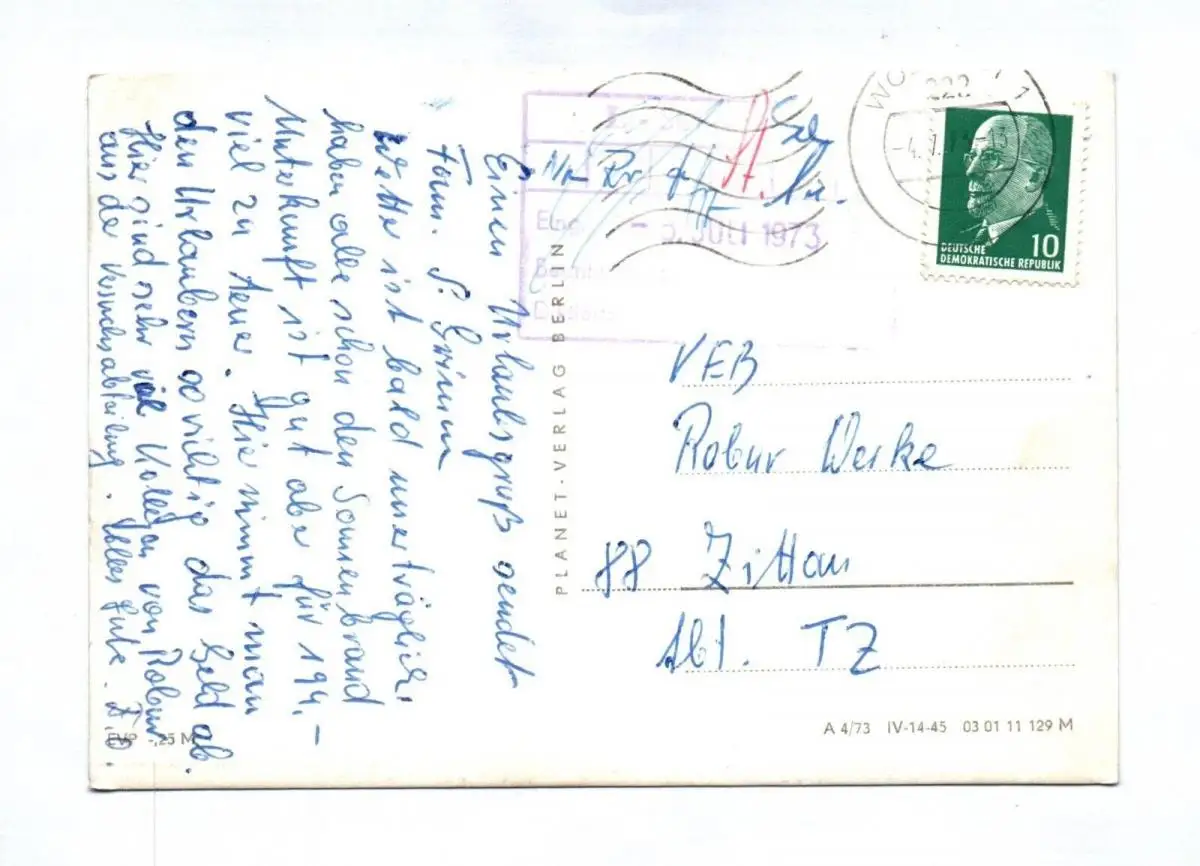 Einen Urlaubsgruß sendet
Fam. S. Grimm
Wetter ist bald unerträglich,
haben alle schon den Sonnenbrand
Unterkunft ist gut aber für 194,-
viel zu teuer. Hier nimmt man
den Urlaubern so richtig das Geld ab.
Hier sind sehr viel Kollegen von Robur
aus der Versuchsabteilung. Alles Gute.
EVP -,25 M
PLANET-VERLAG BERLIN
Eing.
- 5. JULI 1973
222
DEUTSCHE
DEMOKRATISCHE REPUBLIK
10
VEB
Robur Werke
88 Zittau
Abt. TZ
A 4/73 IV-14-45 03 01 11 129 M